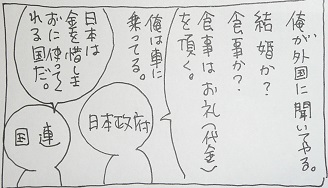 俺が外国に聞いてやる。
結婚か?
食事か?
食事はお礼(代金)
を頂く。
俺は車に
乗ってる。
日本政府
日本は
金を惜しま
おに使ってく
れる国だ。
国連